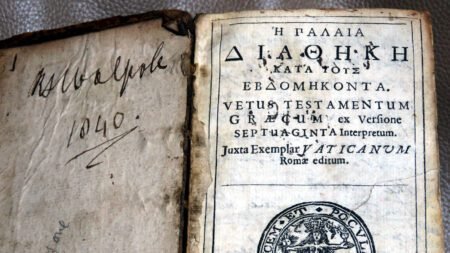 1840.
Η ΠΑΛΑΙΑ
ΔΙΑΘΗΚΗ
ΚΑΤΑ ΤΟΥΣ
ΕΒΔΟΜΗΚΟΝΤΑ.
VETUS TESTAMENTUM
GRÆCUM ex Versione
SEPTUAGINTA Interpretum.
Juxta Exemplar VATICANUM
Romæ editum.
CEM ET POCUL